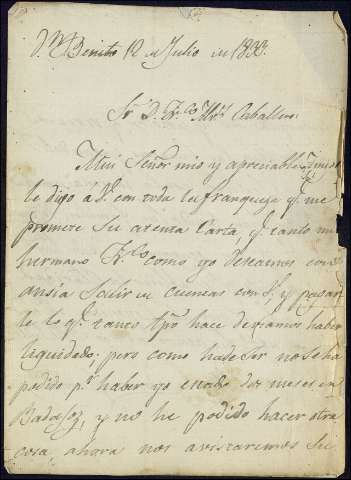 Dn Benito 12 de Julio de 1833.
Sr D. Frco Mrtz Caballero
Mui Señor mio y apreciable
le digo á V. con toda la franqueza q.e me
promete su atenta Carta, q.e tanto mi
hermano Frco como yo deseamos con
ansia Salir de cuentas con V. y pagar
le lo q.e tanto tpo hace debiamos haber
liquidado; pero como ha de Ser no se ha
podido pr haber yo estado dos meses en
Badajoz, y no he podido hacer otra
cosa, ahora nos avistaremos Su